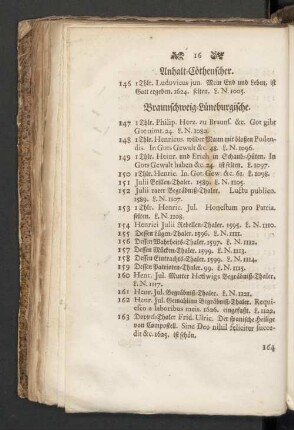 16
Anhalt-Cöthenscher.
146 1 Thlr. Ludovicus jun. Mein End und Leben, ist
Gott ergeben. 1624. selten. L. N. 1005.
Braunschweig-Lüneburgische.
147 1 Thlr. Philip. Herz. zu Braunf. &c. Got gibt
Got nimt. 24. L. N. 1082.
148 1 Thlr. Henricus wilder Mann mit blossen Puden-
dis. In Gots Gewalt &c. 48. L. N. 1096.
149 1 Thlr. Heinr. und Erich in Schaub-Hüten. In
Gots Gewalt haben &c. 24. ist selten. L. 1097.
150 1 Thlr. Henric. In Got. Gew. &c. 62. L. 1098.
151 Julii Brillen-Thaler. 1589. L. 1105.
152 Julii rarer Begräbniß-Thaler. Luctu publico.
1589. L. N. 1107.
153 1 Thlr. Henric. Jul. Honestum pro Patria.
selten. L. N. 1108.
154 Henrici Julii Rebellen-Thaler. 1595. L. N. 1110.
155 Dessen Lügen-Thaler. 1596. L. N. 1111.
156 Dessen Wahrheits-Thaler. 1597. L. N. 1112.
157 Dessen Mücken-Thaler. 1599. L. N. 1113.
158 Dessen Eintrachts-Thaler. 1599. L. N. 1114.
159 Dessen Patrioten-Thaler. 99. L. 1115.
160 Henr. Jul. Mutter Hedwigs Begräbniß-Thaler.
L. N. 1117.
161 Henr. Jul. Begräbniß-Thaler. L. N. 1121.
162 Henr. Jul. Gemahlinn Begräbniß-Thaler. Requi-
esco a laboribus meis. 1626. eingefaßt. L. 1122.
163 Doppel-Thaler Frid. Ulric. Der spanische Heilige
von Compostell. Sine Deo nihil feliciter succe-
dit &c. 1625. ist schön.
164